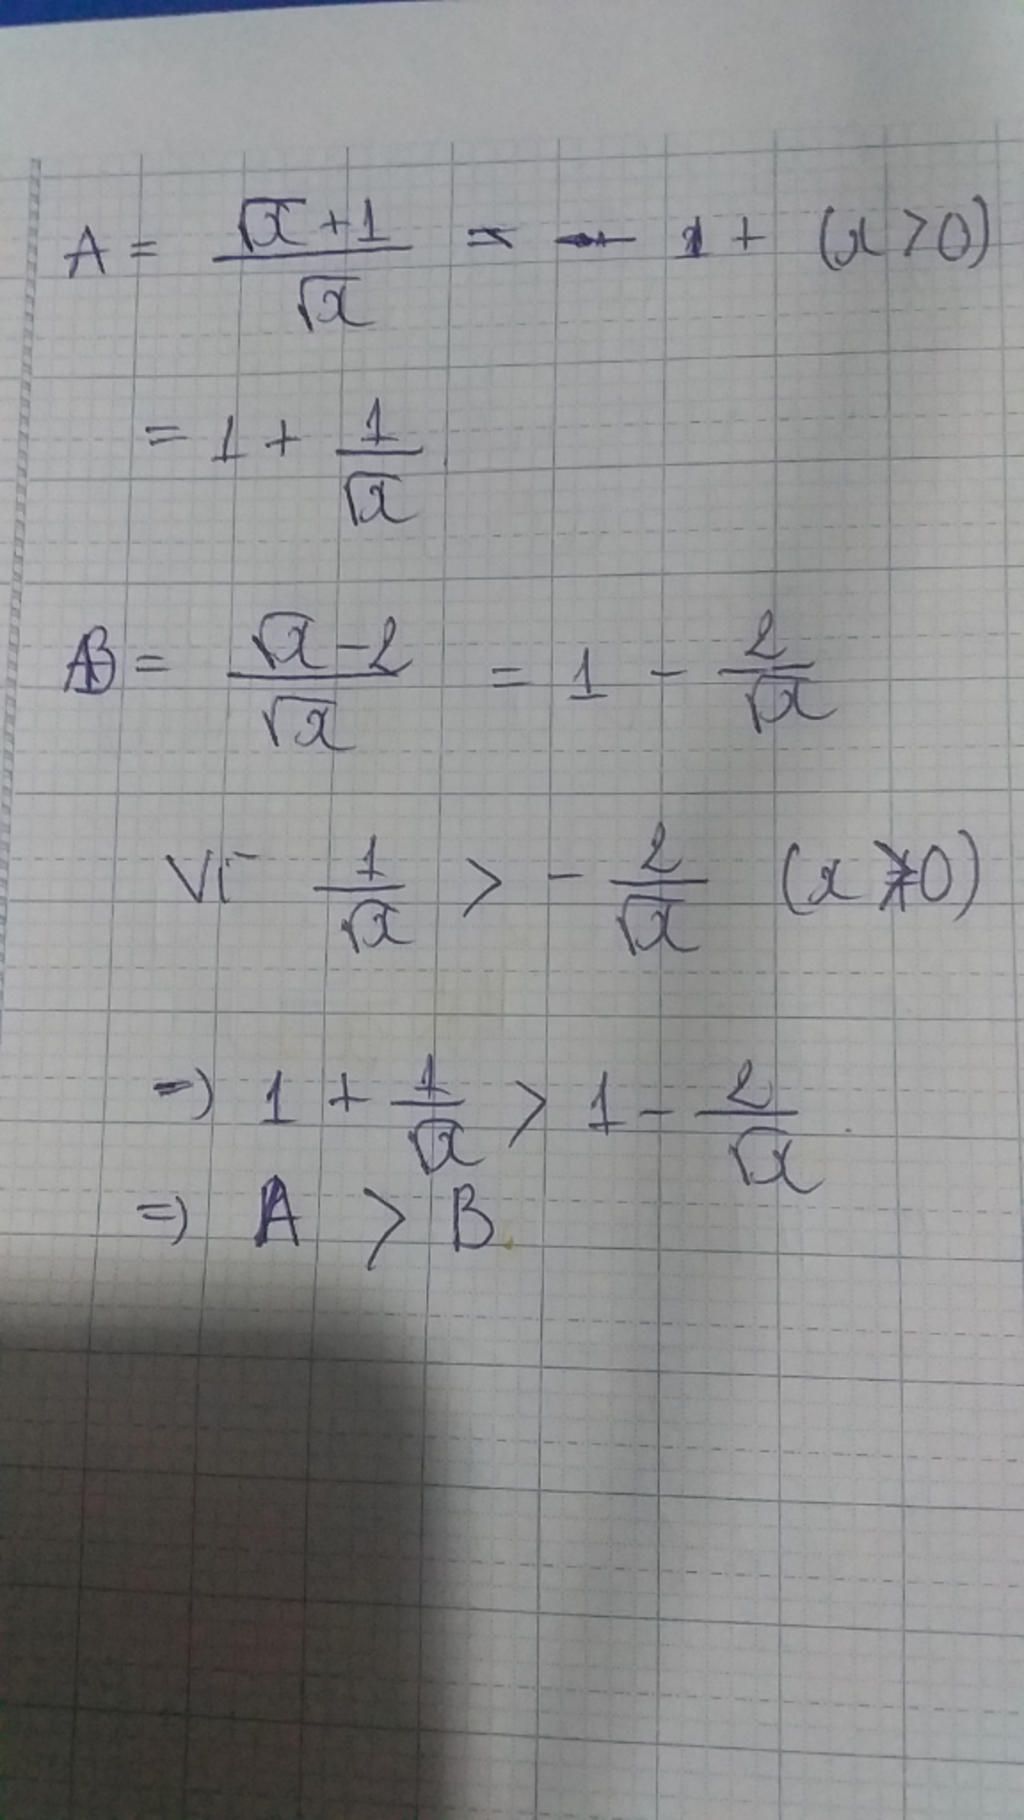 A = \frac{\sqrt{x}+1}{\sqrt{x}} = 1 + (x > 0)
= 1 + \frac{1}{\sqrt{x}}
B = \frac{\sqrt{x}-2}{\sqrt{x}} = 1 - \frac{2}{\sqrt{x}}
Vì \frac{1}{\sqrt{x}} > -\frac{2}{\sqrt{x}} (x > 0)
=> 1 + \frac{1}{\sqrt{x}} > 1 - \frac{2}{\sqrt{x}}
=> A > B